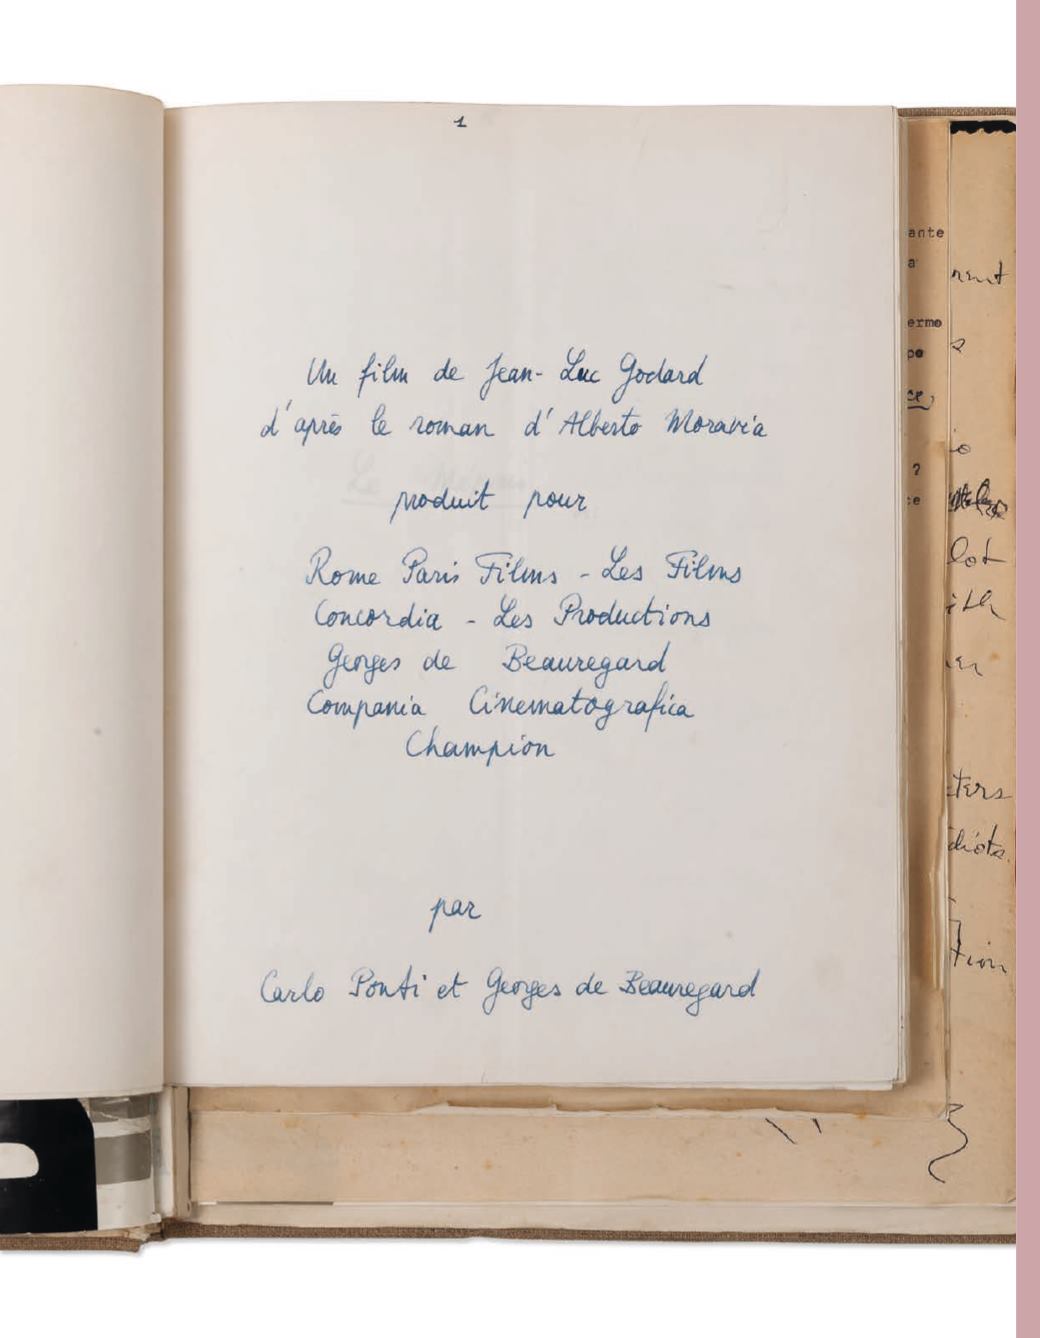 1
Un film de Jean-Luc Godard
d'après le roman d'Alberto Moravia
produit pour
Rome Paris Films - Les Films
Concordia - Les Productions
Georges de Beauregard
Compania Cinematografica
Champion
par
Carlo Ponti et Georges de Beauregard
ante
a
ermo
pe
ce,
?
ce
lot
ith
ters
diots.
tion